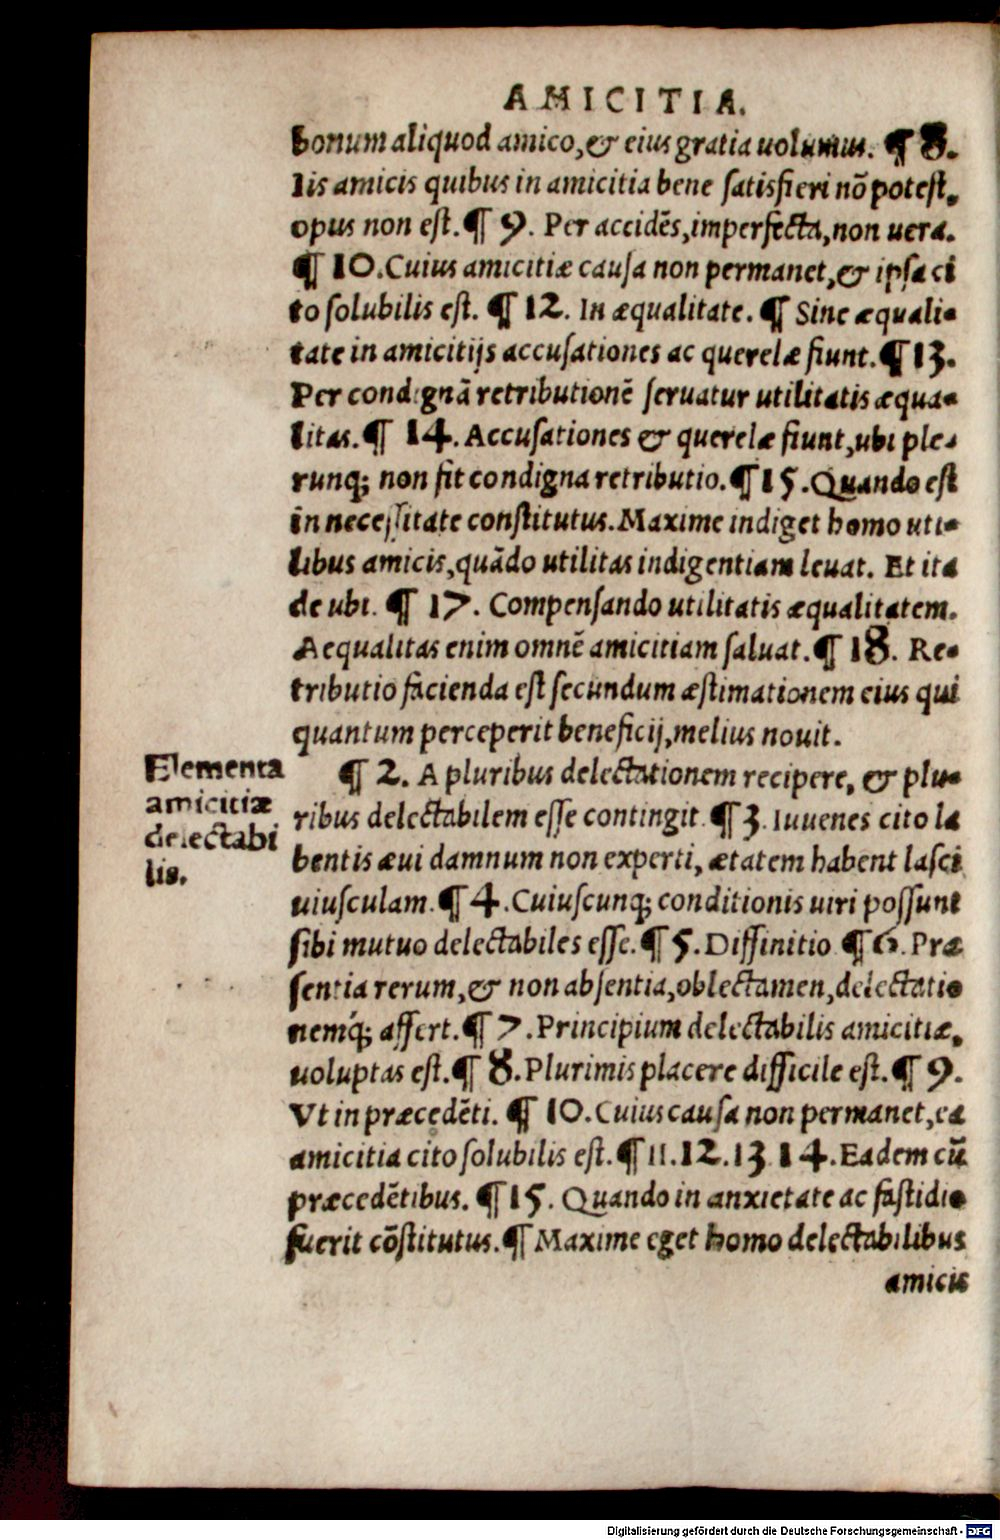 AMICITIA.
bonum aliquod amico, & eius gratia uolumus. ¶ 8.
Iis amicis quibus in amicitia bene satisfieri nõ potest,
opus non est. ¶ 9. Per accidẽs, imperfecta, non uera.
¶ 10. Cuius amicitiæ causa non permanet, & ipsa ci
to solubilis est. ¶ 12. In æqualitate. ¶ Sine æquali-
tate in amicitijs accusationes ac querelæ fiunt. ¶ 13.
Per condignã retributionẽ seruatur utilitatis æqua-
litas. ¶ 14. Accusationes & querelæ fiunt, ubi ple-
runq; non fit condigna retributio. ¶ 15. Quando est
in necessitate constitutus. Maxime indiget homo uti-
libus amicis, quãdo utilitas indigentiam leuat. Et ita
de ubi. ¶ 17. Compensando utilitatis æqualitatem.
Aequalitas enim omnẽ amicitiam saluat. ¶ 18. Re-
tributio facienda est secundum æstimationem eius qui
quantum perceperit beneficij, melius nouit.
Elementa
amicitiæ
delectabi
lis.
¶ 2. A pluribus delectationem recipere, & plu-
ribus delectabilem esse contingit. ¶ 3. Iuuenes cito la
bentis æui damnum non experti, ætatem habent lasci
uiusculam. ¶ 4. Cuiuscunq; conditionis uiri possunt
sibi mutuo delectabiles esse. ¶ 5. Diffinitio ¶ 6. Præ
sentia rerum, & non absentia, oblectamen, delectatio
nemq́; affert. ¶ 7. Principium delectabilis amicitiæ,
uoluptas est. ¶ 8. Plurimis placere difficile est. ¶ 9.
Vt in præcedẽti. ¶ 10. Cuius causa non permanet, ea
amicitia cito solubilis est. ¶ 11. 12. 13 14. Eadem cũ
præcedẽtibus. ¶ 15. Quando in anxietate ac fastidio
fuerit cõstitutus. ¶ Maxime eget homo delectabilibus
amicis
Digitalisierung gefördert durch die Deutsche Forschungsgemeinschaft - DFG